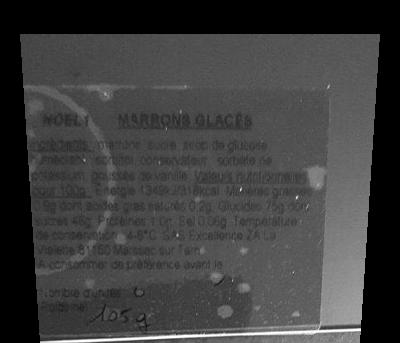 NOEL1 MARRONS GLACÉS
Ingrédients: marrons, sucre, sirop de glucose,
humectant: sorbitol, conservateur: sorbate de
potassium, gousses de vanille. Valeurs nutritionnelles
pour 100g: Energie 1349kJ/318kcal Matières grasses
dont acides gras saturés 0.2g, Glucides 75g dont
sucres 48g, Protéines 1.0g, Sel 0.06g. Température
de conservation: 4-6°C. SAS Excellence ZA La
Violette 81150 Marssac sur Tarn
A consommer de préférence avant le
Nombre d'unités 6
Poids net 105g